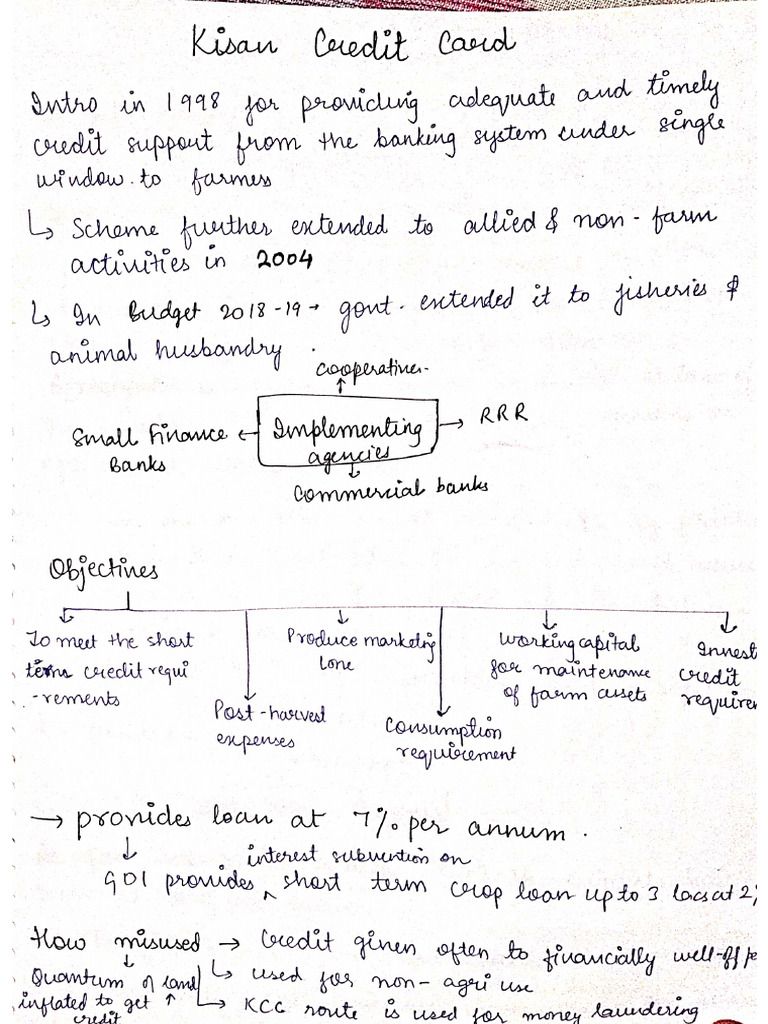 Kisan Credit Card
Intro in 1998 for providing adequate and timely
credit support from the banking system under single
window. to farmers
↳ Scheme further extended to allied & non-farm
activities in 2004
↳ In Budget 2018-19 → govt. extended it to fisheries &
animal husbandry.
cooperatives
Small Finance Banks ← Implementing agencies → RRR
commercial banks
Objectives
To meet the short
terms credit requi
-rements
Post-harvest
expenses
Produce marketing
lone
Consumption
requirement
Working capital
for maintenance
of farm assets
Invest
credit
require
→ provides loan at 7% per annum.
interest subvention on
GOI provides ^ short term crop loan up to 3 lacs at 2%
How misused → Credit given often to financially well-off pe
↳ used for non-agri use
↳ KCC route is used for money laundering
Quantum of land
inflated to get ↑
credit